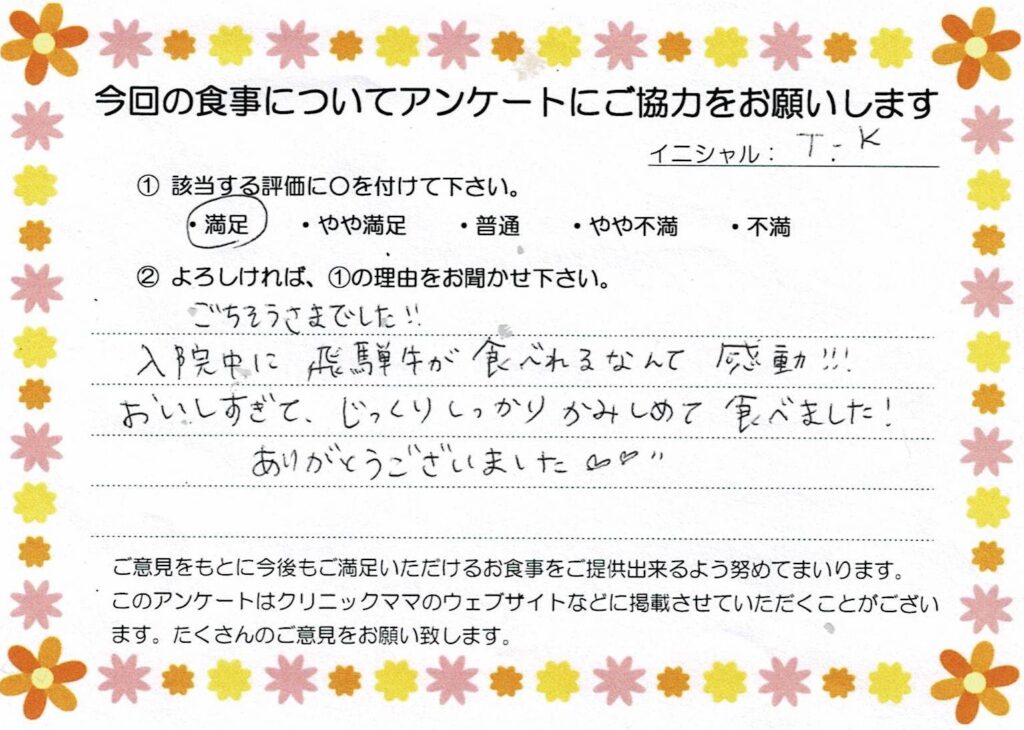 今回の食事についてアンケートにご協力をお願いします
イニシャル： T.K
① 該当する評価に〇を付けて下さい。
・満足 ・やや満足 ・普通 ・やや不満 ・不満
② よろしければ、①の理由をお聞かせ下さい。
ごちそうさまでした!!
入院中に 飛騨牛が 食べれるなんて 感動!!!
おいしすぎて、じっくりしっかり かみしめて 食べました!
ありがとうございました♡♡"
ご意見をもとに今後もご満足いただけるお食事をご提供出来るよう努めてまいります。
このアンケートはクリニックママのウェブサイトなどに掲載させていただくことがござい
ます。たくさんのご意見をお願い致します。